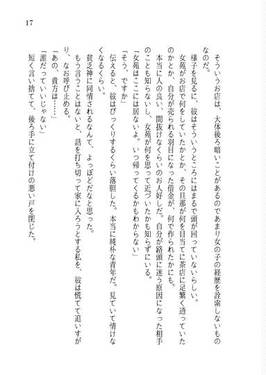 そういうお店は、大体後ろ暗いことがあるのであまり女の子の経歴を詮索しないもの
なのだ。
様子を見るに、彼はそういうところにはまるで頭が回っていないらしい。
女苑がお店で何をしていたかとか、その旦那が何を目当てに茶店に足繁く通っていた
のかとか、自分が売られる羽目になった借金が、何で作られたかにも。
本当に人の良い、間抜けなくらいのお人好しだ。自分が路頭に迷う原因になった相手
のことも知らないし、女苑が何を思って近づいたかも知らずにいる。
「女苑はここには居ないよ、いつ帰ってくるかもわからない」
「そう、ですか」
伝えると、彼はびっくりするくらい落胆した。本当に純朴な青年だ。見ていて情けな
くなるくらい。
貧乏神に同情されるなんて、よっぽどだなと思った。
もう言うことはないと、話を打ち切って家に入ろうとする私を、彼は慌てて追いすが
り、なお呼び止める。
「あの、貴方は……」
「誰だっていいじゃない」
短く言い捨てて、後ろ手に立て付けの悪い戸を閉じた。
17